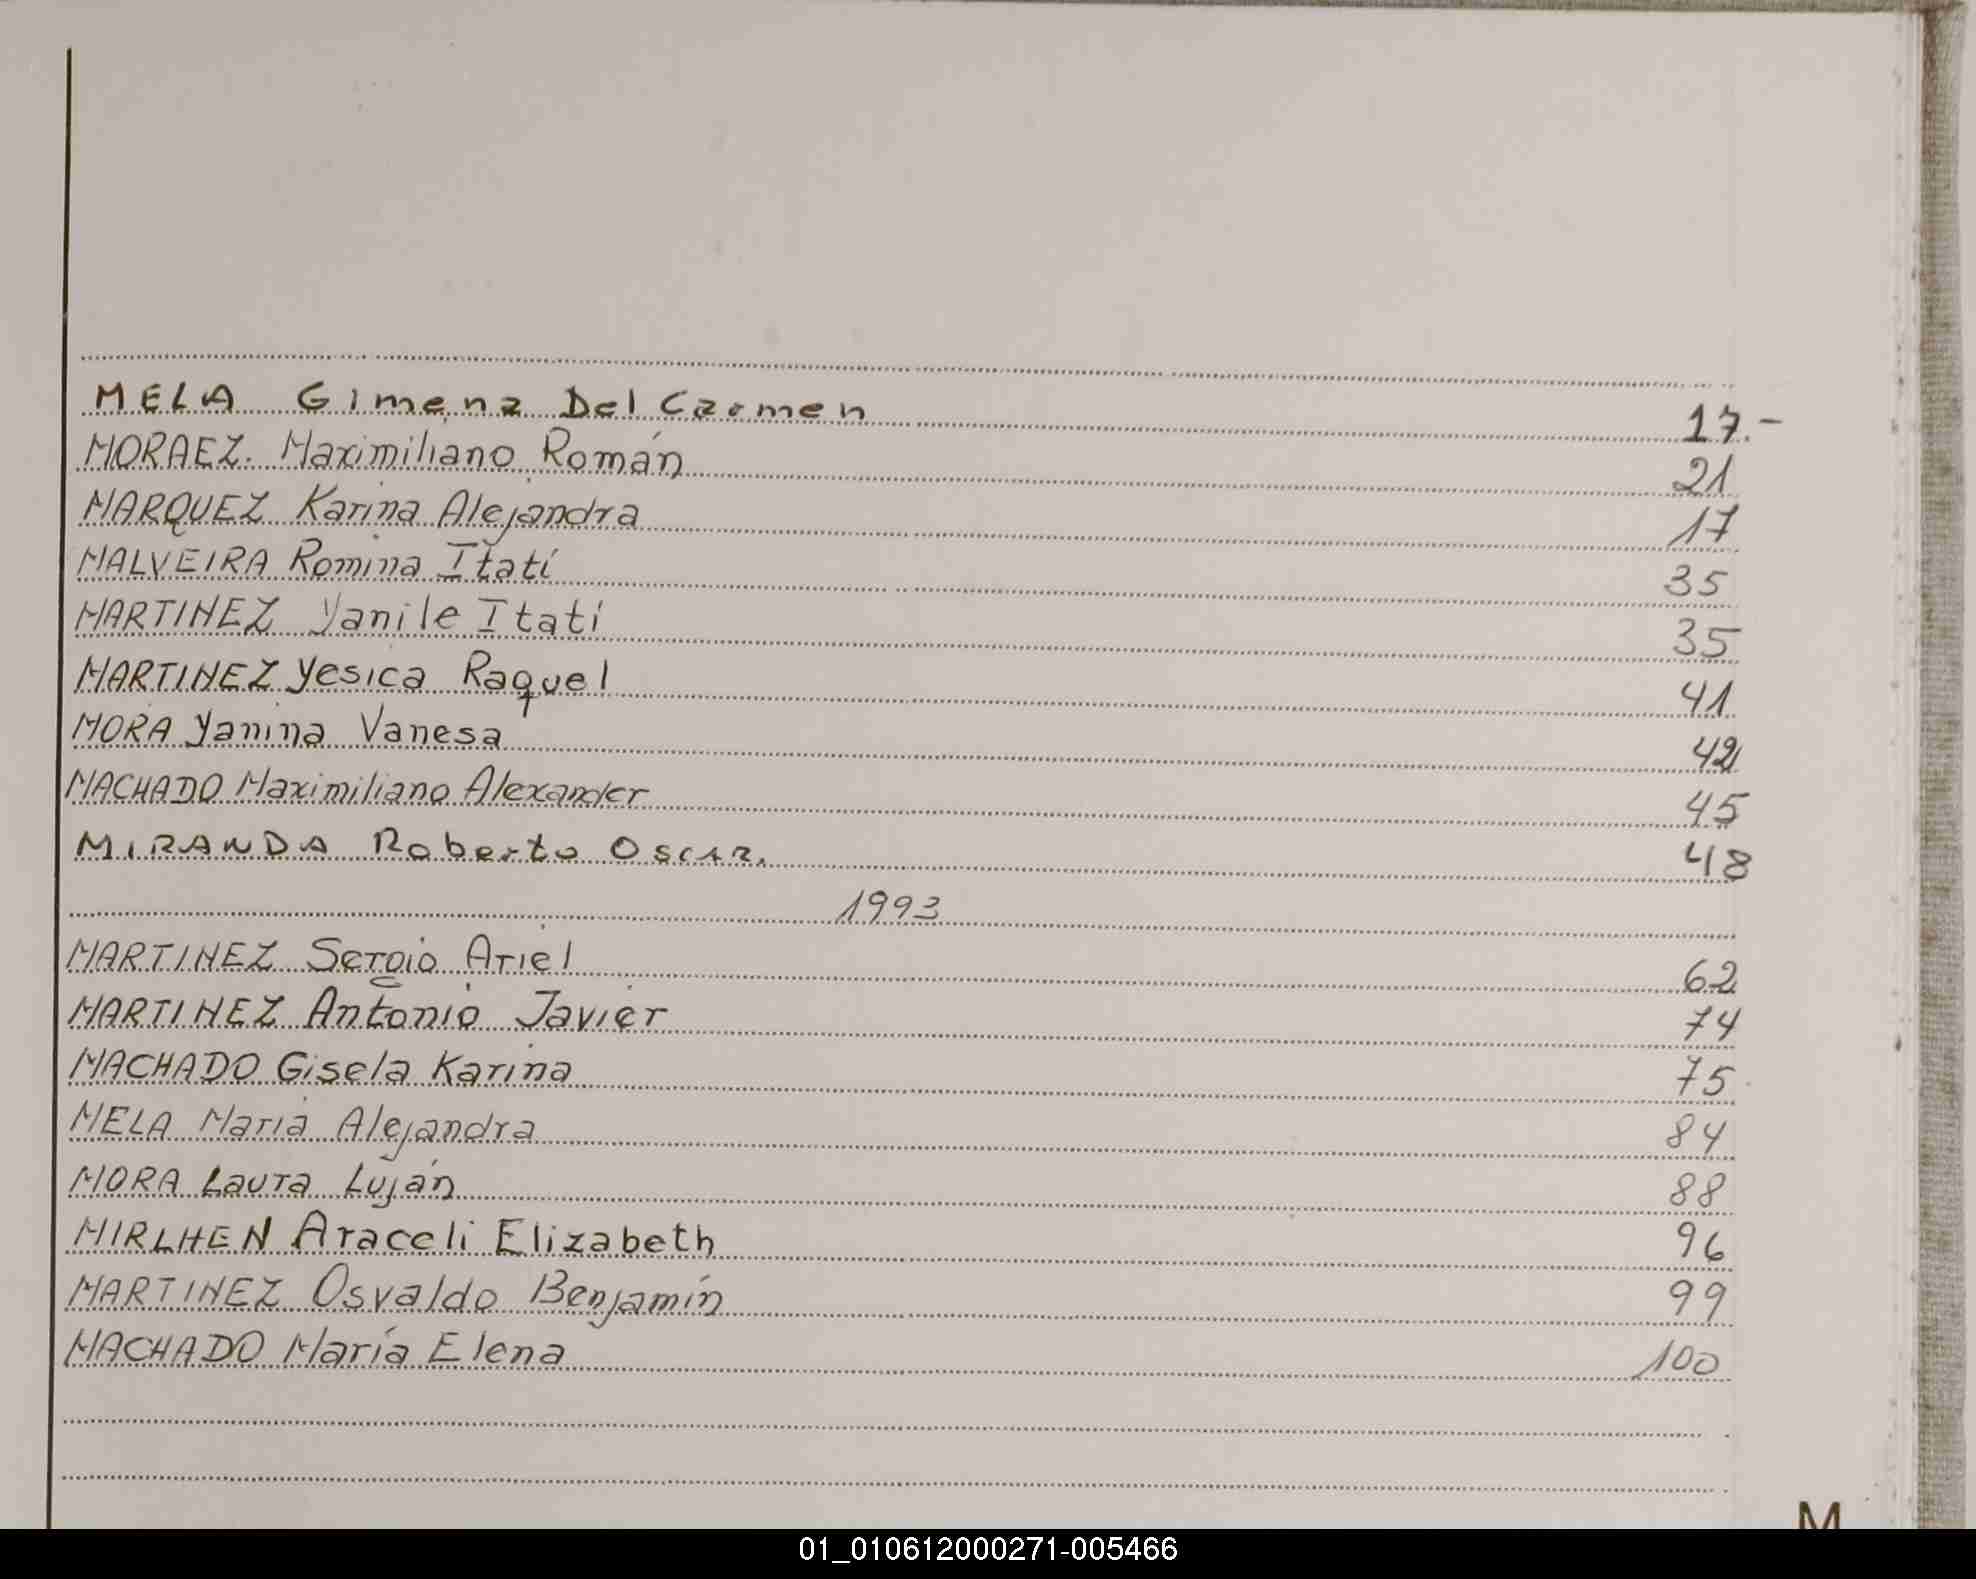 MELA Gimena Del Carmen 17.-
MORAEZ. Maximiliano Román 21
MARQUEZ Karina Alejandra 17
MALVEIRA Romina Itatí 35
MARTINEZ Yanile Itatí 35
MARTINEZ Yesica Raquel 41
MORA Yanina Vanesa 42
MACHADO Maximiliano Alexander 45
MIRANDA Roberto Oscar. 48
1993
MARTINEZ Sergio Ariel 62
MARTINEZ Antonio Javier 74
MACHADO Gisela Karina 75
MELA María Alejandra 84
MORA Laura Luján 88
MIRLHEN Araceli Elizabeth 96
MARTINEZ Osvaldo Benjamín 99
MACHADO María Elena 100
M
01_010612000271-005466